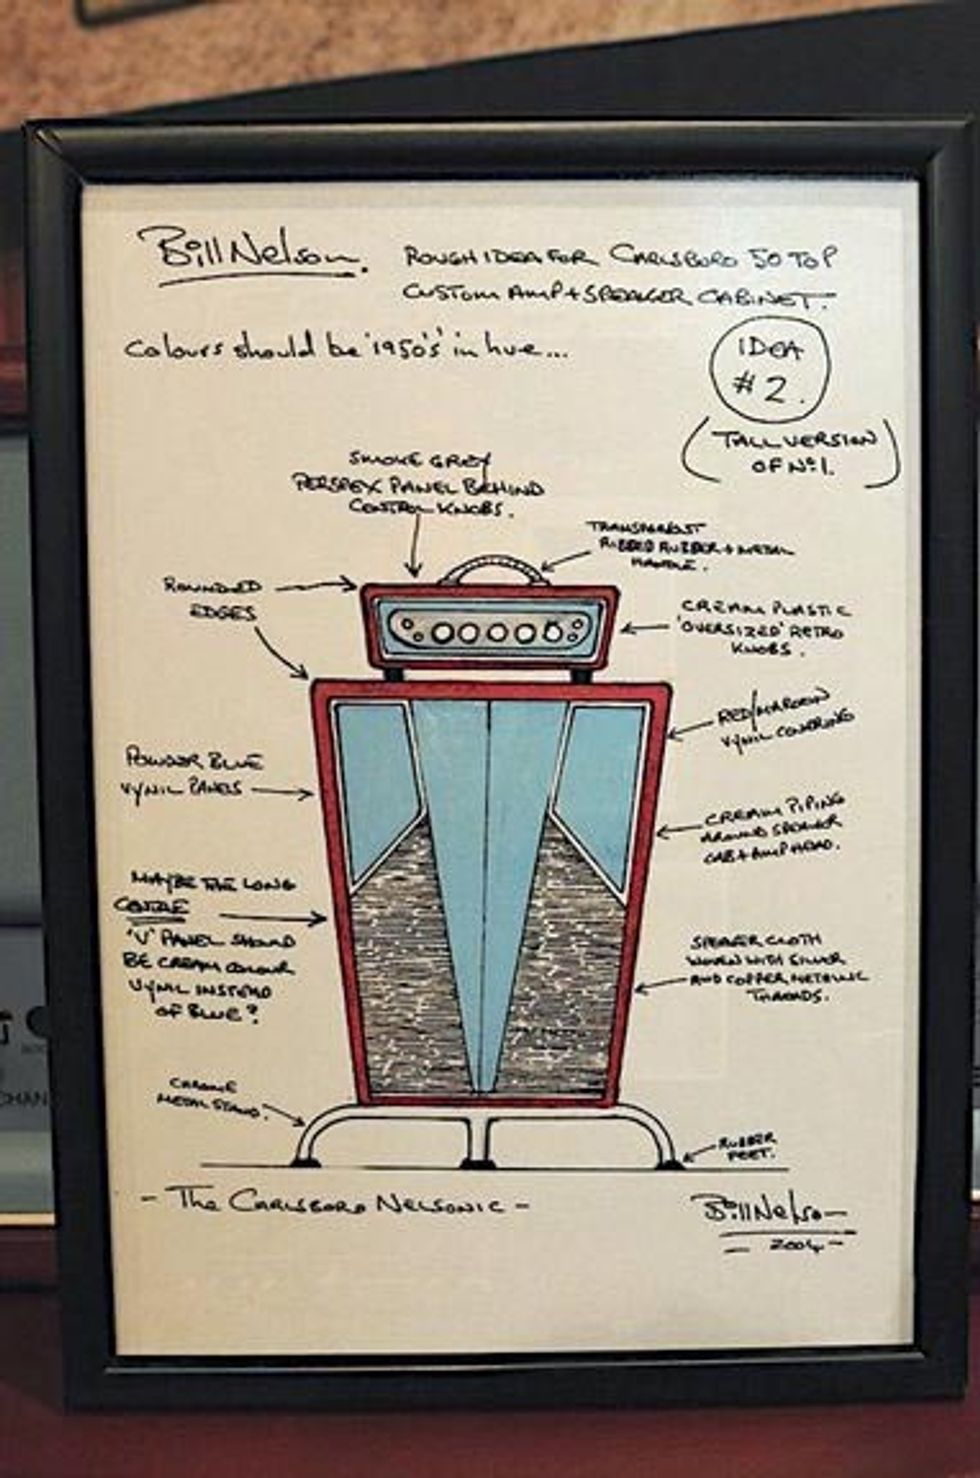 Bill Nelson.
ROUGH IDEA FOR CARLSBORO 50 TOP
CUSTOM AMP + SPEAKER CABINET.
Colours should be '1950's' in hue...
IDEA
#2.
(TALL VERSION
OF No 1.)
SMOKE GREY
PERSPEX PANEL BEHIND
CONTROL KNOBS.
TRANSPARENT
RIBBED RUBBER + METAL
HANDLE.
ROUNDED
EDGES
CREAM PLASTIC
'OVERSIZED' RETRO
KNOBS.
RED/MAROON
VYNIL COVERING
POWDER BLUE
VYNIL PANELS
CREAM PIPING
AROUND SPEAKER
CAB + AMP HEAD.
MAYBE THE LONG
CENTRE
'V' PANEL SHOULD
BE CREAM COLOUR
VYNIL INSTEAD
OF BLUE?
SPEAKER CLOTH
WOVEN WITH SILVER
AND COPPER METALLIC
THREADS.
CHROME
METAL STAND.
RUBBER
FEET.
- The CARLSBORO NELSONIC -
Bill Nelson
- 2004 -
CHAN